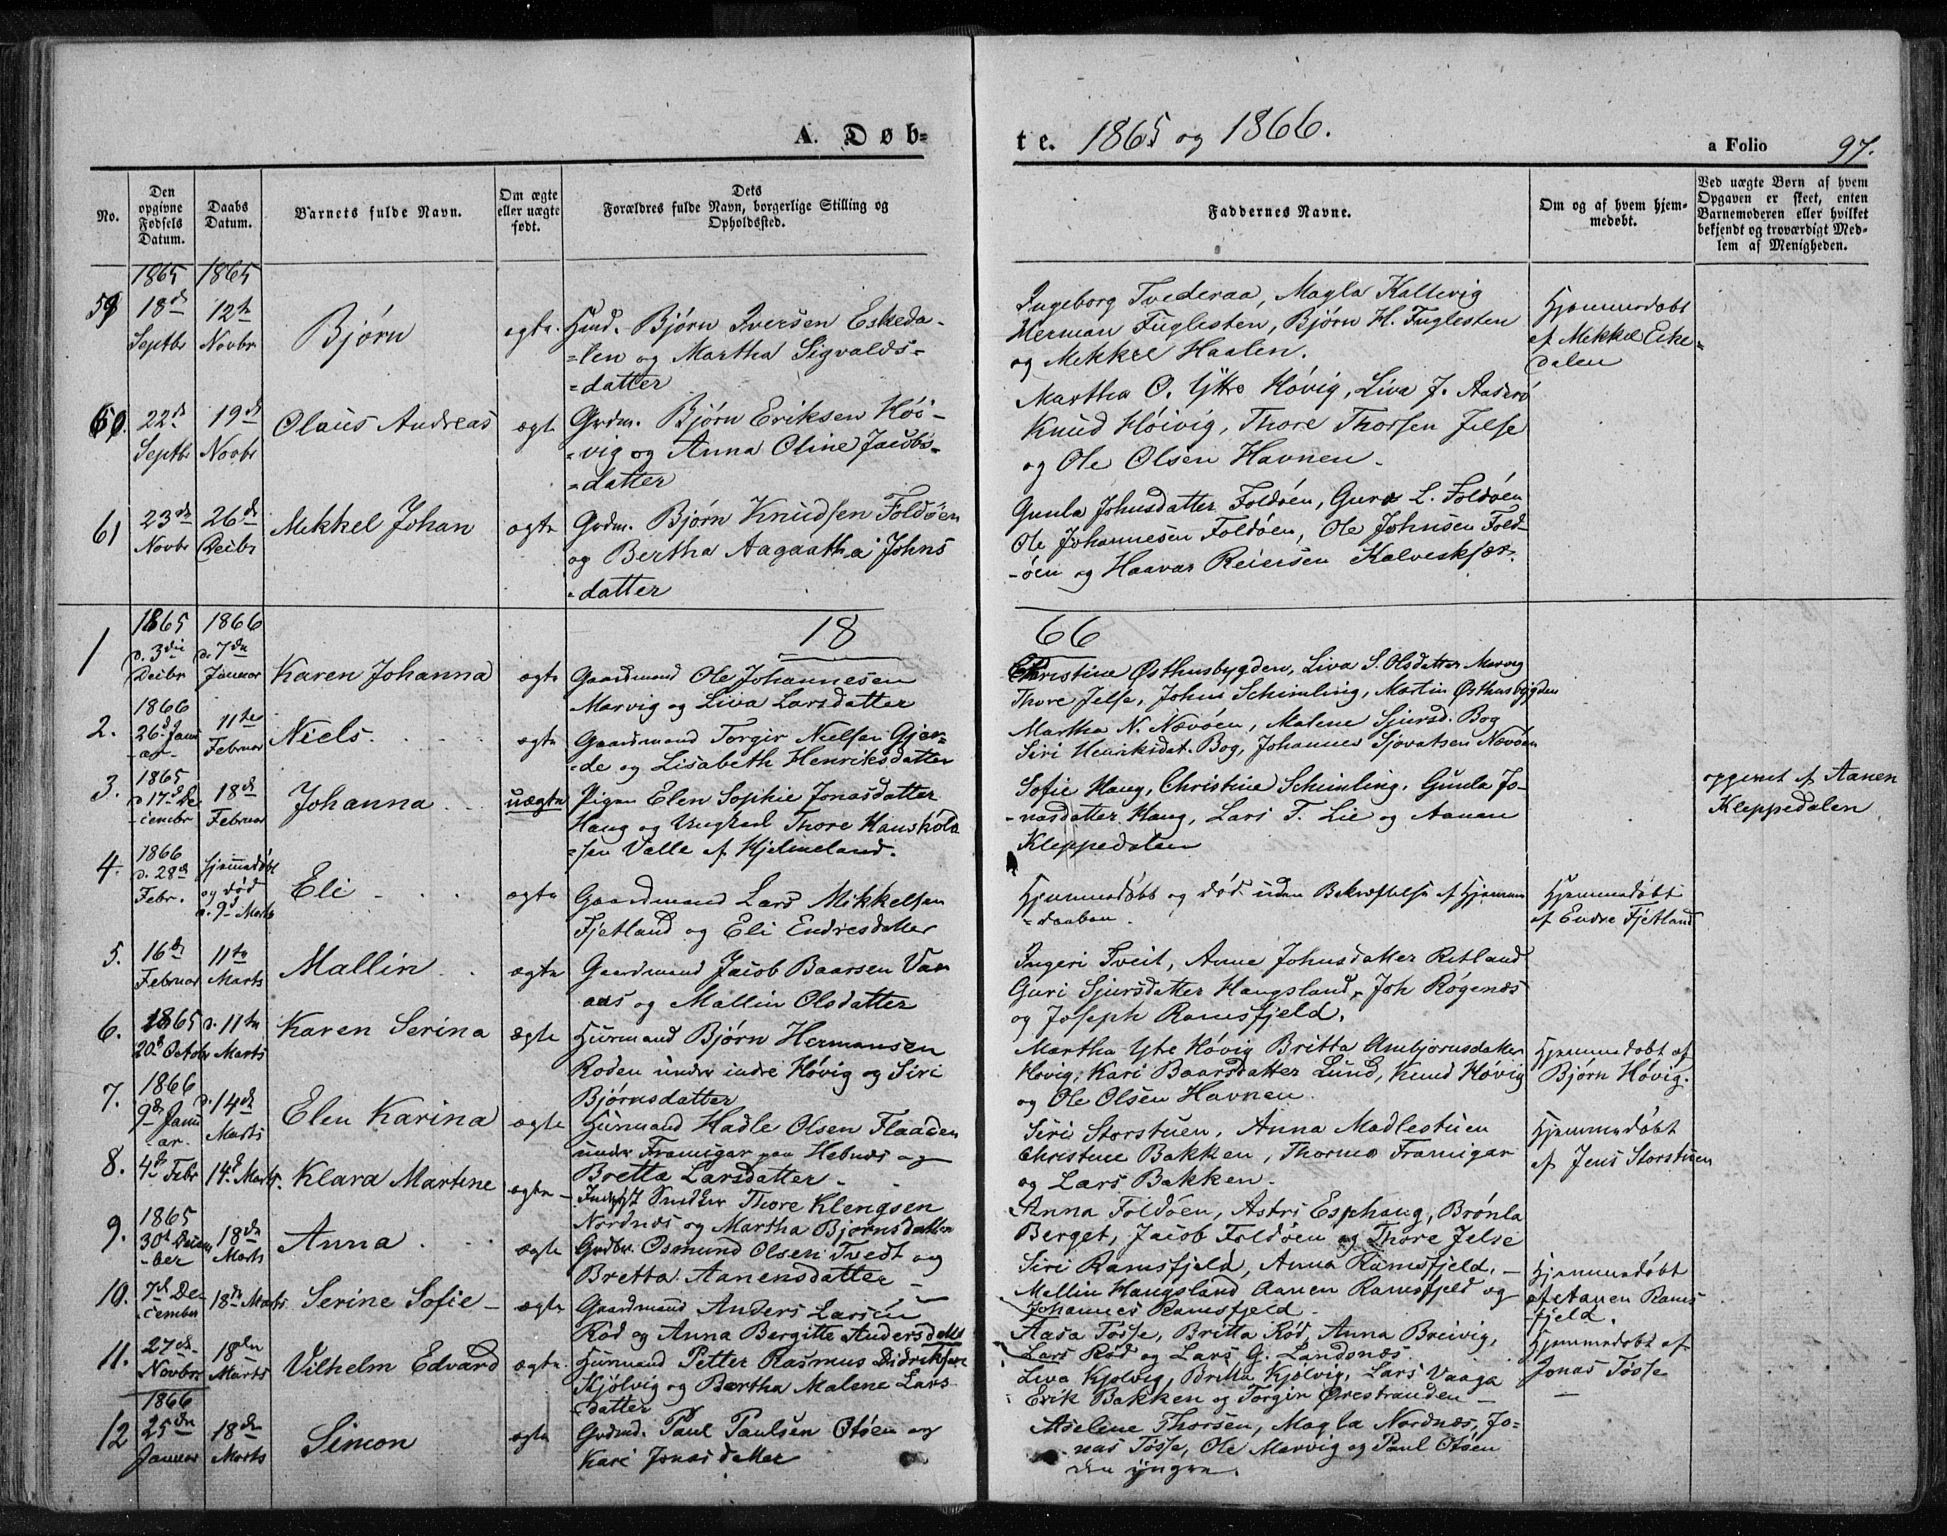 A. Døb-
te. 1865 og 1866.
a Folio 97.
No.
Den opgivne Fødsels Datum.
Daabs Datum.
Barnets fulde Navn.
Om ægte eller uægte født.
Dets Forældres fulde Navn, borgerlige Stilling og Opholdssted.
Faddernes Navne.
Om og af hvem hjem-
medøbt.
Ved uægte Børn af hvem
Opgaven er skeet, enten
Barnemoderen eller hvilket
bekjendt og troværdigt Med-
lem af Menigheden.
1865 1865
59 18de Septbr 12te Novbr Bjørn ægte. Husmd. Bjørn Iversen Eskeda-
=len og Martha Sigvalds=
=datter
Ingeborg Tvederaa, Magla Kallevig
Herman Fuglesten, Bjørn H. Fuglesten
og Mekkel Haalen.
Hjemmedøbt
af Mekkel Eske=
dalen
60. 22de Septbr 19de Novbr Olaus Andreas ægte Grdm. Bjørn Eriksen Høi-
=vig og Anna Oline Jacobs=
=datter
Martha O. Ytre Høvig, Liva J.
Knud Høivig, Thore Thorsen Jelse
og Ole Olsen Havnen.
61 23de Novbr 26de Decbr Mekkel Johan ægte Grdm. Bjørn Knudsen Foldøen
og Bertha Aagaatha Johns
=datter
Gunla Johnsdatter Foldøen, Guro L. Foldøen
Ole Johannesen Foldøen, Ole Johnsen Fold-
-øen og Haavar Reiersen Kalveskjær.
1866
1 1865 d. 3die Decbr 1866 d. 7de Januar Karen Johanna ægte Gaardmand Ole Johannesen
Marvig og Liva Larsdatter
Christine Østhusbygden, Liva S. Olsdatter Marvig
Thore Jelse, Johns Schimling, Martin Østhusbygden
2. 1866 26de Janu
ar 11te Februar Niels. ægte Gaardmand Torgir Nielsen Gjer-
=de og Lisabeth Henriksdatter
Martha N. Nævøen, Malene Sjursd. Bog
Siri Henriksdat. Bog, Johannes Sjovatsen Nævøen
3. 1865 d. 17de De
cembr 18de Februar Johanna uægte Pigen Elen Sophie Jonasdatter
Haug og Ungkarl Thore Hanskola
=sen Valle af Hjelmeland.
Sofie Haug, Christine Schimling, Gunla Jo-
-nasdatter Haug, Lars T. Lie og Aanen
Kleppedalen
opgivet af Aanen
Kleppedalen
4. 1866 d. 28de Febr. hjemmedøbt
og død
d. 9de Marts Eli ægte Gaardmand Lars Mikkelsen
Fjetland og Eli Endresdatter
Hjemmedøbt og død uden Bekræftelse af Hjemme
=daaben.
Hjemmedøbt
af Endre Fjetland
5. 16de Februar 11te Marts Mallin ægte Gaardmand Jacob Baarsen Va
as og Mallin Olsdatter
Ingeri Tveit, Anne Johnsdatter Retland
Guri Sjursdatter Haugsland, Joh Røgenæs
og Joseph Ramsfjeld.
6. 1865 20de Octobr d. 11te Marts Karen Serina ægte Husmand Bjørn Hermansen
Roden under indre Høvig og Siri
Bjørnsdatter
Martha Ytre Høvig Britta Ambjørnsdatter
Høvig, Kari Baarsdatter Lund, Knud Høvig
og Ole Olsen Havnen.
Hjemmedøbt af
Bjørn Høvig.
7. 1866 9de Janu
ar. d. 14de Marts Elen Karina ægte Husmand Hadle Olsen Flaaden
under Framigar paa Hebnes og
Bretta Larsdatter.
Siri Storstuen, Anna Madlestuen
Christine Bakken, Thormo Framigar
og Lars Bakken.
Hjemmedøbt
af Jens Storstuen
8. 4de Febr 14de Marts. Klara Martine ægte Inderst Snedker Thore Klengsen
Nordnæs og Martha Bjørnsdatter
Anna Foldøen, Astri Esphaug, Brønla
Berget, Jacob Foldøen og Thore Jelse
9. 1865 30te Decem
=ber 18de Marts Anna ægte Grdbr. Osmund Olsen Tvedt og
Bretta Aanensdatter
Siri Ramsfjeld, Anna Ramsfjeld,
Mallin Haugsland Aanen Ramsfjeld og
Johannes Ramsfjeld.
Hjemmedøbt
af Aanen Rams
fjeld.
10. 7de De
cember 18de Marts Serine Sofie ægte Gaardmand Anders Larsen
Rød og Anna Bergitte Andersdatter
Aasa Tøsse, Britta Rød, Anna Breivig,
Lars Rød og Lars G. Landsnæs.
Hjemmedøbt af
Jonas Tøsse
11. 27de Novbr 18de Marts Vilhelm Edvard ægte. Husmand Petter Rasmus Didriksen
Kjølvig og Bertha Malene Lars
datter
Liva Kjølvig, Britta Kjølvig, Lars Vaaga
Erik Bakken og Torgir Ørestranden
12 1866 25de Januar 18de Marts Simon ægte Grdmd. Paul Paulsen Otøen og
Kari Jonasdatter
Adelene Thorsen, Magla Nordnæs, Jo-
nas Tøsse, Ole Marvig og Paul Otøen
den yngre.